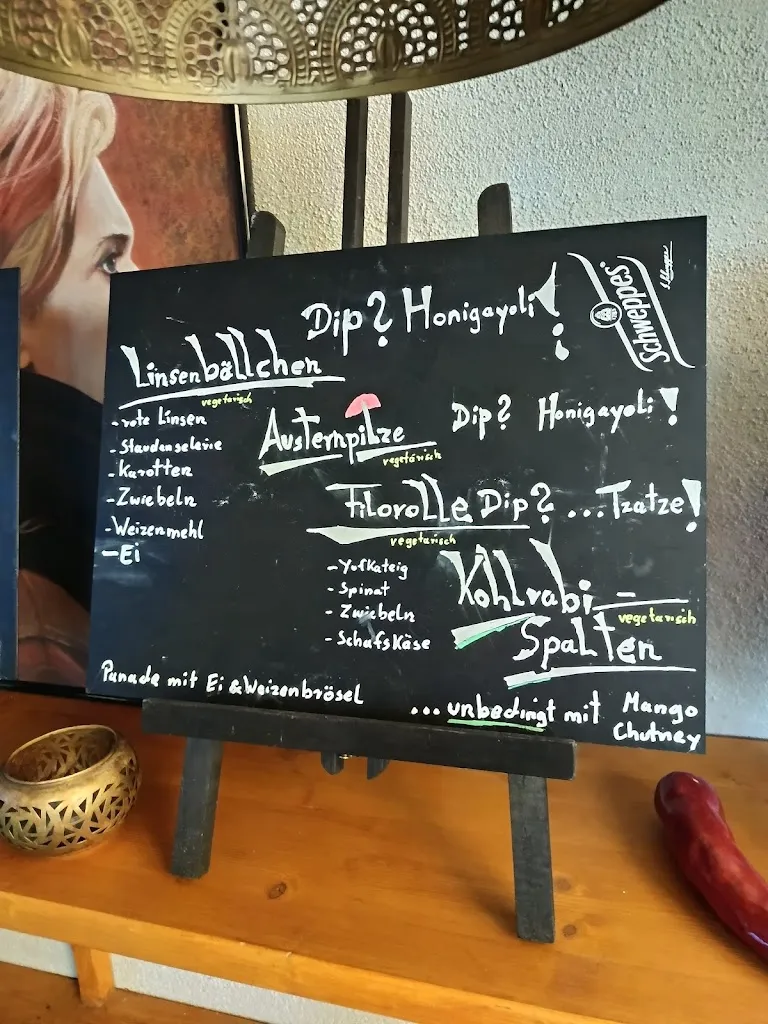 Dip? Honigayoli!
Schweppes
Linsenbällchen
vegetarisch
-rote Linsen
-Staudenselerie
-Karotten
-Zwiebeln
-Weizenmehl
-Ei
Austernpilze
vegetarisch
Dip? Honigayoli!
Filorolle Dip? ...Tzatze!
vegetarisch
-Yufkateig
-Spinat
-Zwiebeln
-SchafsKäse
Kohlrabi-
vegetarisch
Spalten
Panade mit Ei & Weizenbrösel
...unbedingt mit Mango
Chutney